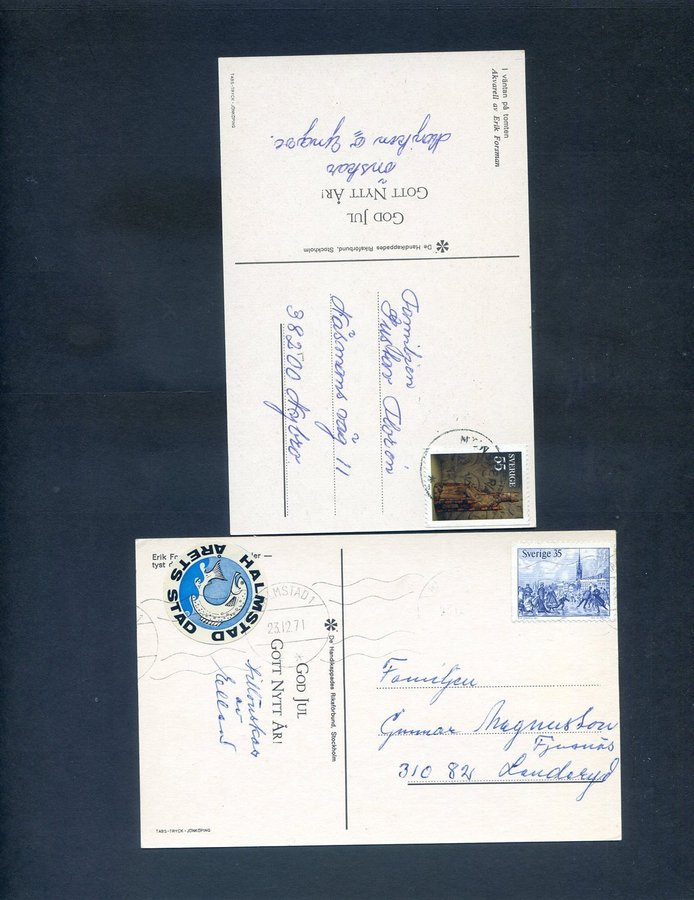 I väntan på tomten
Akvarell av Erik Forsman
GOD JUL
GOTT NYTT ÅR!
önskar
Majken o Yngve.
TABS-TRYCK - JÖNKÖPING
De Handikappades Riksförbund, Stockholm
SVERIGE
55
Familjen
Gustav Floren
Kåsmans väg 11
38200 Nybro
Erik Fo
tyst
HALMSTAD
ÅRETS STAD
LMSTAD 1
23.12.71
GOD JUL
GOTT NYTT ÅR!
av
De Handikappades Riksförbund, Stockholm
TABS-TRYCK - JÖNKÖPING
Sverige 35
Familjen
Gunnar Magnusson
310 82 Landeryd